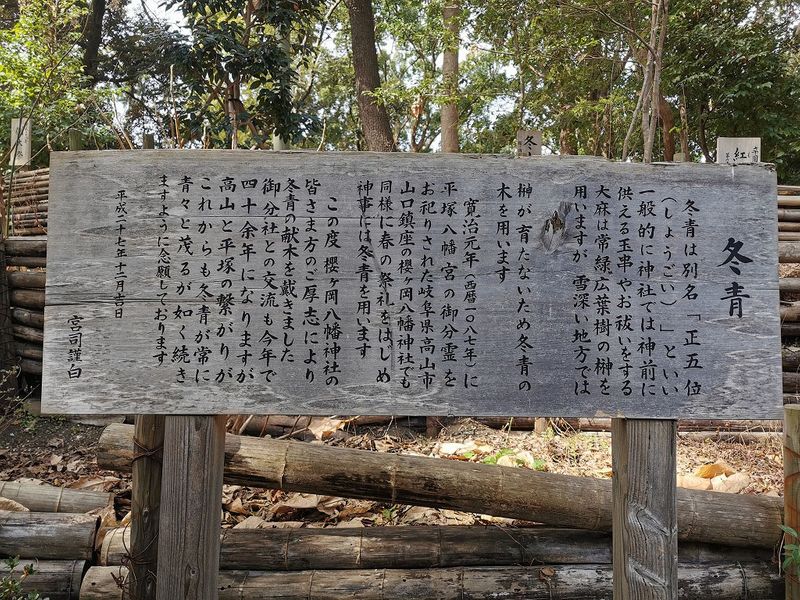 冬青
冬青は別名「正五位
(しょうごい)」といい
一般的に神社では神前に
供える玉串やお祓いをする
大麻は常緑広葉樹の榊を
用いますが 雪深い地方では
榊が育たないため冬青の
木を用います
寛治元年(西暦一〇八七年)に
平塚八幡宮の御分霊を
お祀りされた岐阜県高山市
山口鎮座の櫻ヶ岡八幡神社でも
同様に春の祭礼をはじめ
神事には冬青を用います
この度 櫻ヶ岡八幡神社の
皆さま方のご厚志により
冬青の献木を戴きました
御分社との交流も今年で
四十余年になりますが
高山と平塚の繋がりが
これからも冬青が常に
青々と茂るが如く続き
ますように念願しております
平成二十七年十二月吉日
宮司謹白
冬
紅